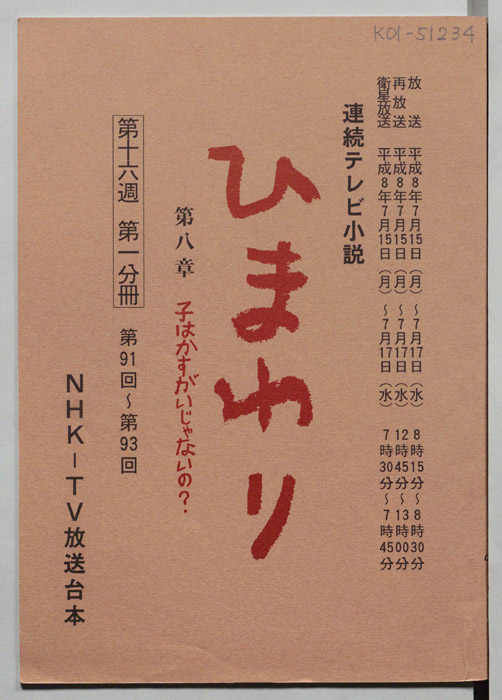 K01-51234
放送 平成8年7月15日(月)~7月17日(水) 8時15分~8時30分
再放送 平成8年7月15日(月)~7月17日(水) 12時45分~13時00分
衛星放送 平成8年7月15日(月)~7月17日(水) 7時30分~7時45分
連続テレビ小説
ひまわり
第八章 子はかすがいじゃないの?
第十六週 第一分冊
第91回~第93回
NHK-TV放送台本